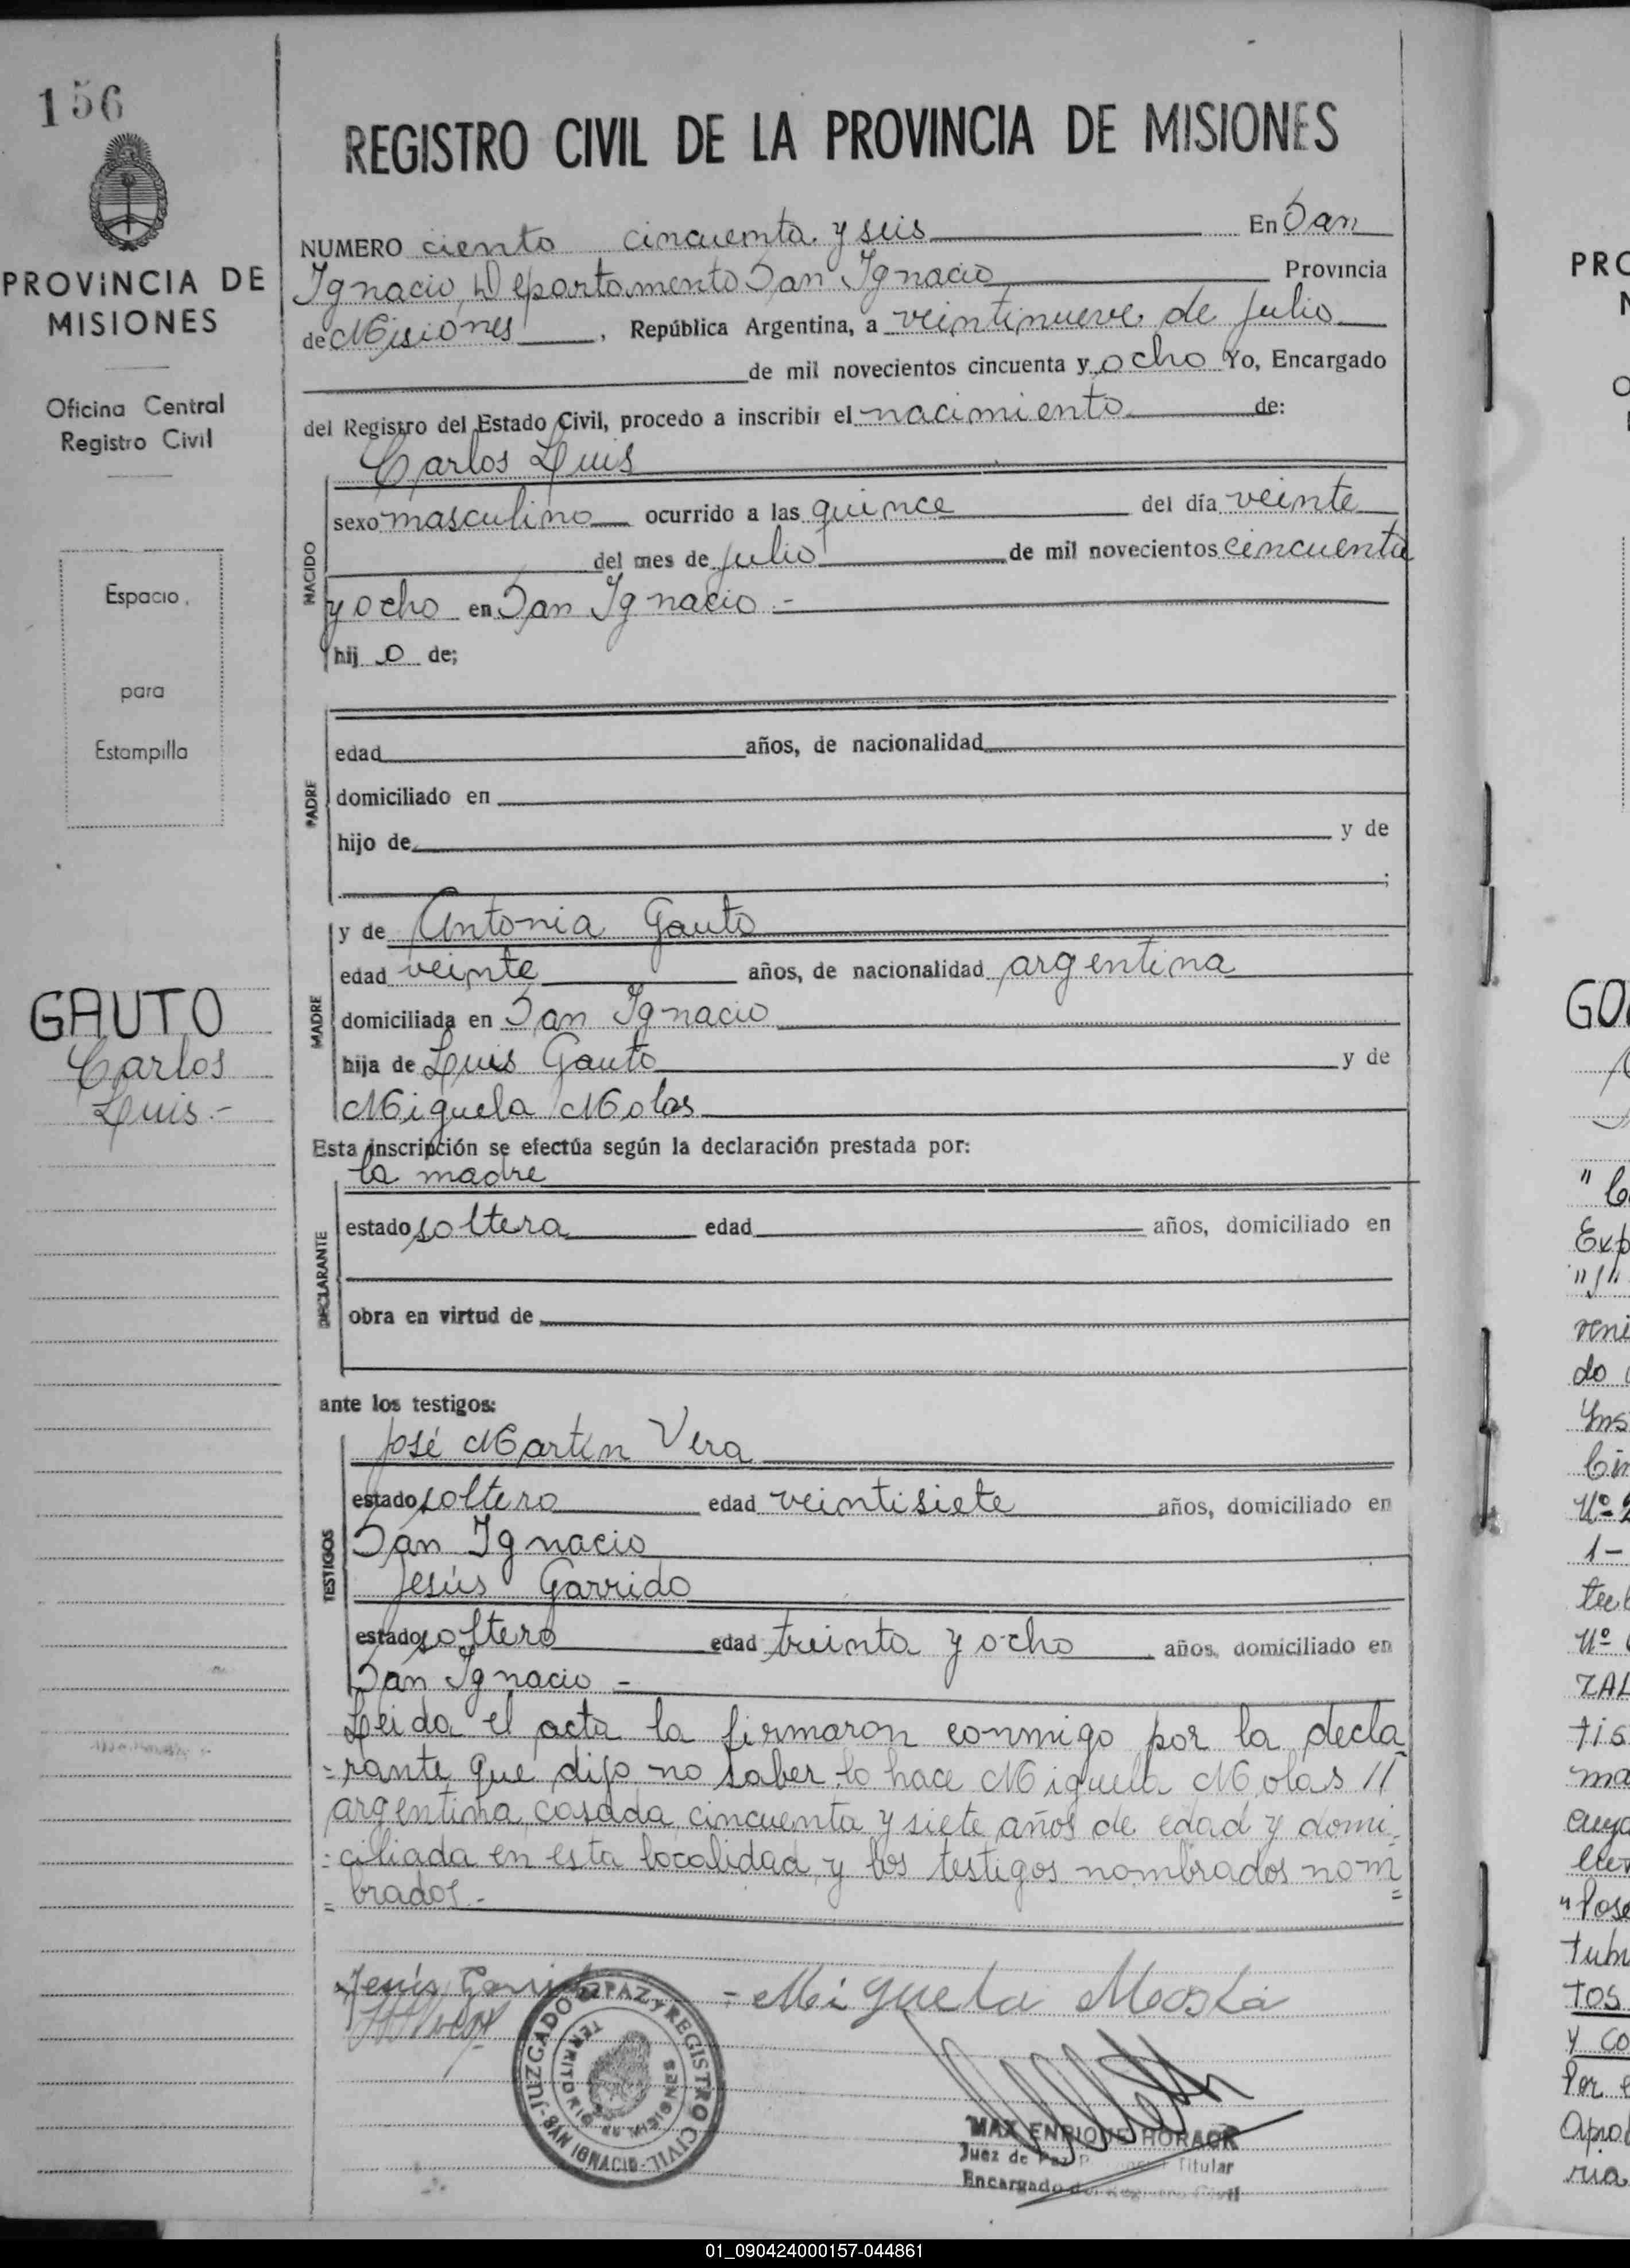 156
PROVINCIA DE
MISIONES
Oficina Central
Registro Civil
Espacio
para
Estampilla
GAUTO
Carlos
Luis.-
REGISTRO CIVIL DE LA PROVINCIA DE MISIONES
NUMERO ciento cincuenta y seis En San
Ignacio, Departamento San Ignacio Provincia
de Misiones, República Argentina, a veintinueve de julio
de mil novecientos cincuenta y ocho Yo, Encargado
del Registro del Estado Civil, procedo a inscribir el nacimiento de:
Carlos Luis
NACIDO
sexo masculino ocurrido a las quince del día veinte
del mes de julio de mil novecientos cincuenta
y ocho en San Ignacio.-
hijo de;
PADRE
edad años, de nacionalidad
domiciliado en
hijo de y de
;
MADRE
y de Antonia Gauto
edad veinte años, de nacionalidad argentina
domiciliada en San Ignacio
hija de Luis Gauto y de
Miguela Molas
Esta inscripción se efectúa según la declaración prestada por:
la madre
DECLARANTE
estado soltera edad años, domiciliado en
obra en virtud de
ante los testigos:
José Martín Vera
TESTIGOS
estado soltero edad veintisiete años, domiciliado en
San Ignacio
Jesús Garrido
estado soltero edad treinta y ocho años, domiciliado en
San Ignacio -
Leida el acta la firmaron conmigo por la decla
=rante que dijo no saber lo hace Miguela Molas //
argentina, casada, cincuenta y siete años de edad y domi=
=ciliada en esta localidad y los testigos nombrados nom=
=brados.-
Jesús Garrido
- Miguela
JUZGADO DE PAZ Y REGISTRO CIVIL - SAN IGNACIO -
TERRITORIO DE MISIONES
MAX ENRIQUE HORACK
Juez de Paz Titular
Encargado del Registro Civil
PRO
O
GO
Exp
"S"
do
Ins
Nº 2
1-
Nº
ZAL
tis
ma
cuya
"Pose
tubr
TOS
Y CO
Por
Apro
ria
01_090424000157-044861